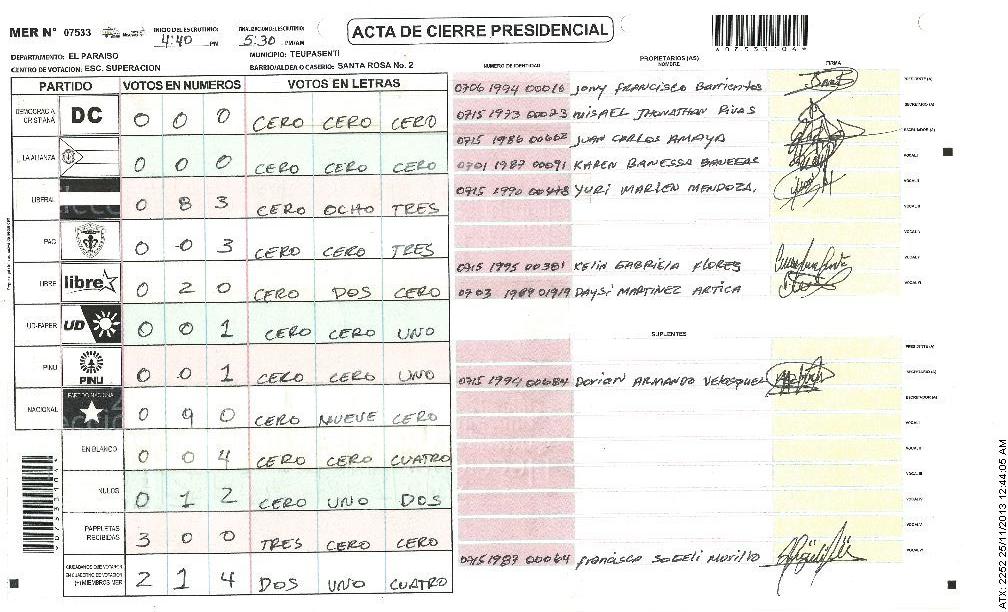 MER N° 07533
INICIO DEL ESCRUTINIO: 4:40 PM
FINALIZACION DEL ESCRUTINIO: 5:30 PM/AM
ACTA DE CIERRE PRESIDENCIAL
A07533104A
DEPARTAMENTO: EL PARAISO
MUNICIPIO: TEUPASENTI
CENTRO DE VOTACION: ESC. SUPERACION
BARRIO/ALDEA O CASERIO: SANTA ROSA No. 2
PARTIDO VOTOS EN NUMEROS VOTOS EN LETRAS
DEMOCRACIA CRISTIANA DC 0 0 0 CERO CERO CERO
LA ALIANZA 0 0 0 CERO CERO CERO
LIBERAL 0 8 3 CERO OCHO TRES
PAC 0 0 3 CERO CERO TRES
LIBRE libre 0 2 0 CERO DOS CERO
UD-FAPER UD 0 0 1 CERO CERO UNO
PINU PINU 0 0 1 CERO CERO UNO
NACIONAL PARTIDO NACIONAL 0 9 0 CERO NUEVE CERO
EN BLANCO 0 0 4 CERO CERO CUATRO
NULOS 0 1 2 CERO UNO DOS
PAPELETAS RECIBIDAS 3 0 0 TRES CERO CERO
CIUDADANOS QUE VOTARON EN CUADERNO DE VOTACION (+) MIEMBROS MER 2 1 4 DOS UNO CUATRO
NUMERO DE IDENTIDAD
PROPIETARIOS (AS)
NOMBRE
FIRMA
0706 1994 00016 Jony Francisco Barrientos PRESIDENTE (A)
0715 1993 00023 MISAEL JHONATHAN RIVAS SECRETARIO (A)
0715 1986 00662 JUAN CARLOS AMAYA ESCRUTADOR (A)
0701 1987 00091 KAREN BANESSA BANEGAS VOCAL I
0715 1990 00448 YURI MARLEN MENDOZA. VOCAL II
VOCAL III
VOCAL IV
0715 1995 00381 KELIN GABRIELA FLORES VOCAL V
0703 1989 01919 DAYSI MARTINEZ ARTICA VOCAL VI
SUPLENTES
PRESIDENTE (A)
0715 1994 00684 Dorian ARMANDO VELASQUEZ SECRETARIO (A)
ESCRUTADOR (A)
VOCAL I
VOCAL II
VOCAL III
VOCAL IV
VOCAL V
0715 1987 00064 Francisco Sogeli Murillo VOCAL VI
ATX: 2252 25/11/2013 12:44:05 AM